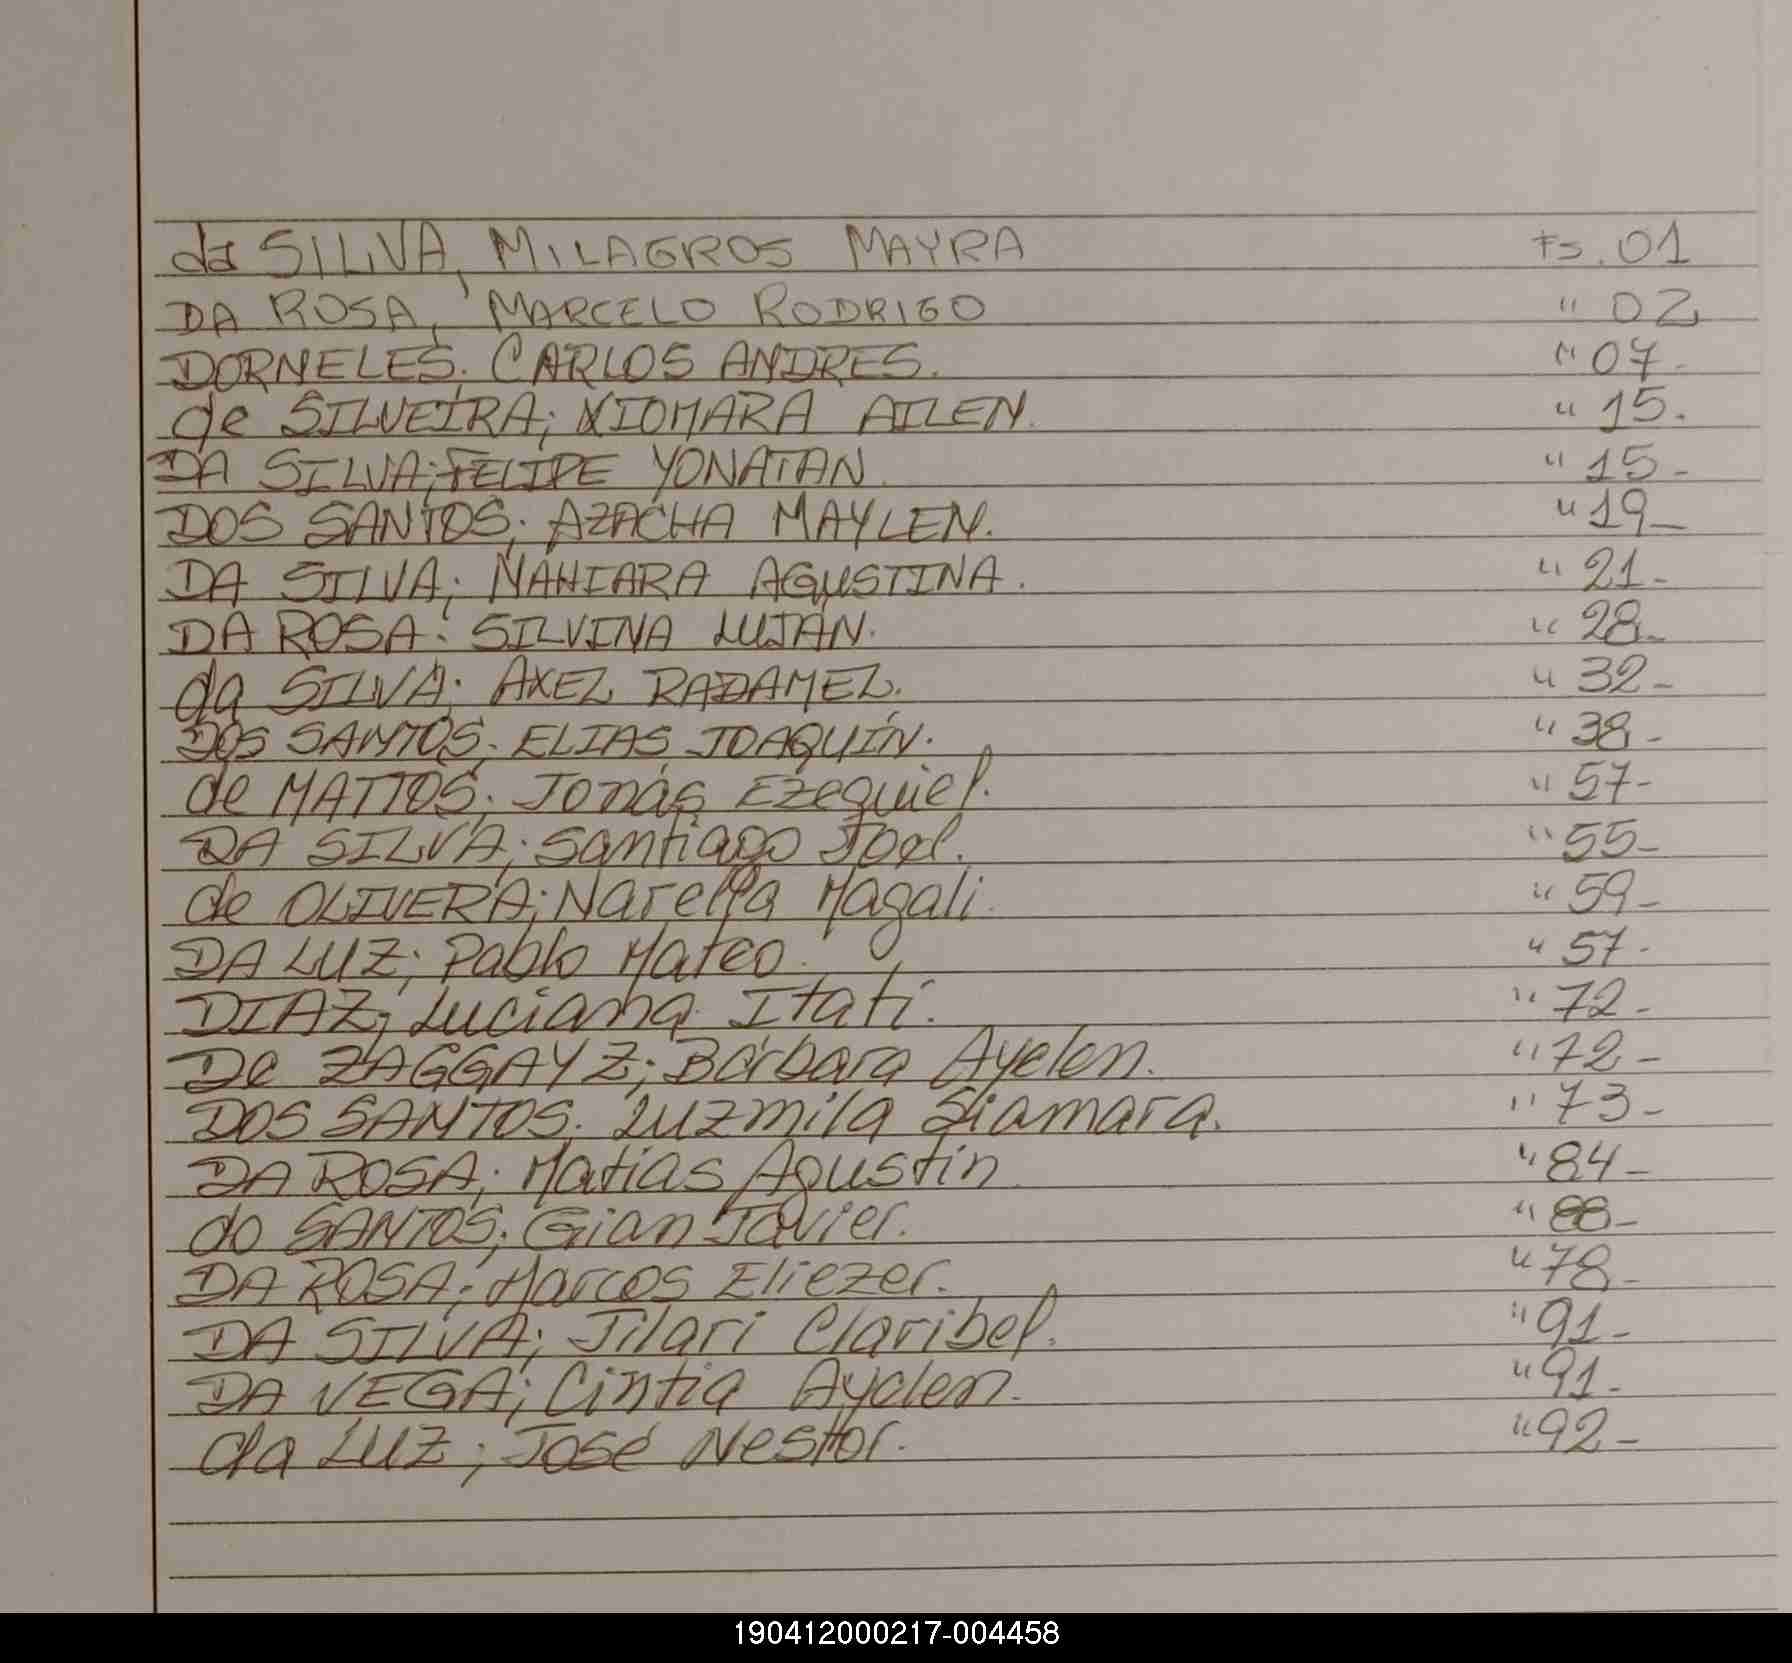 da SILVA, MILAGROS MAYRA Fs. 01
DA ROSA, MARCELO RODRIGO " 02
DORNELES; CARLOS ANDRES. " 07-
de SILVEIRA; XIOMARA AILEN. " 15.
DA SILVA; FELIPE YONATAN " 15-
DOS SANTOS; AZACHA MAYLEN. " 19-
DA SILVA; NAHIARA AGUSTINA. " 21-
DA ROSA; SILVINA LUJAN. " 28-
da SILVA; AXEL RADAMEL. " 32-
DOS SANTOS; ELIAS JOAQUÍN. " 38-
de MATTOS; Jonás Ezequiel. " 57-
DA SILVA; Santiago Joel. " 55-
de OLIVERA; Narella Magali. " 59-
DA LUZ; Pablo Mateo. " 57-
DIAZ; Luciana Itatí. " 72-
De ZAGGAYZ; Bárbara Ayelen. " 72-
DOS SANTOS; Luzmila Siamara. " 73-
DA ROSA; Matias Agustin " 84-
do SANTOS; Gian Javier. " 88-
DA ROSA; Marcos Eliezer. " 78-
DA SILVA; Jilari Claribel. " 91-
DA VEGA; Cintia Ayelen. " 91-
da LUZ; José Nestor. " 92-
190412000217-004458